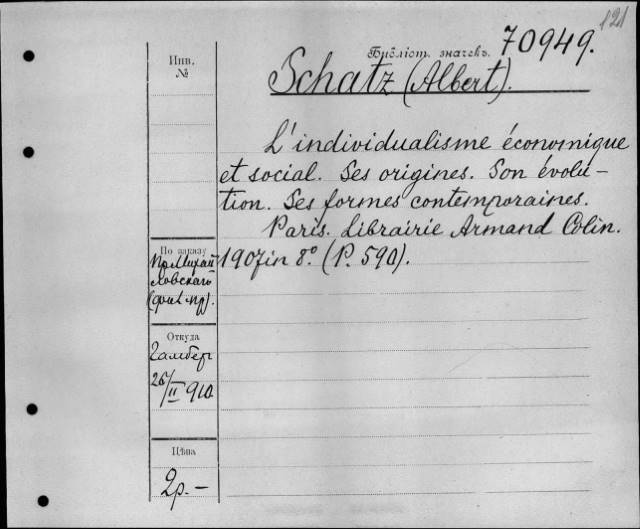 121
Инв.
№
Библіот. значекъ. 70949.
Schatz (Albert).
L'individualisme économique
et social. Ses origines. Son évolu-
tion. Ses formes contemporaines.
Paris. Librairie Armand Colin.
1907 in 8º. (P. 590).
По заказу
Пр. Михай-
ловскаго
Откуда
Гамбер
26/II 910
Цѣна
2р.-